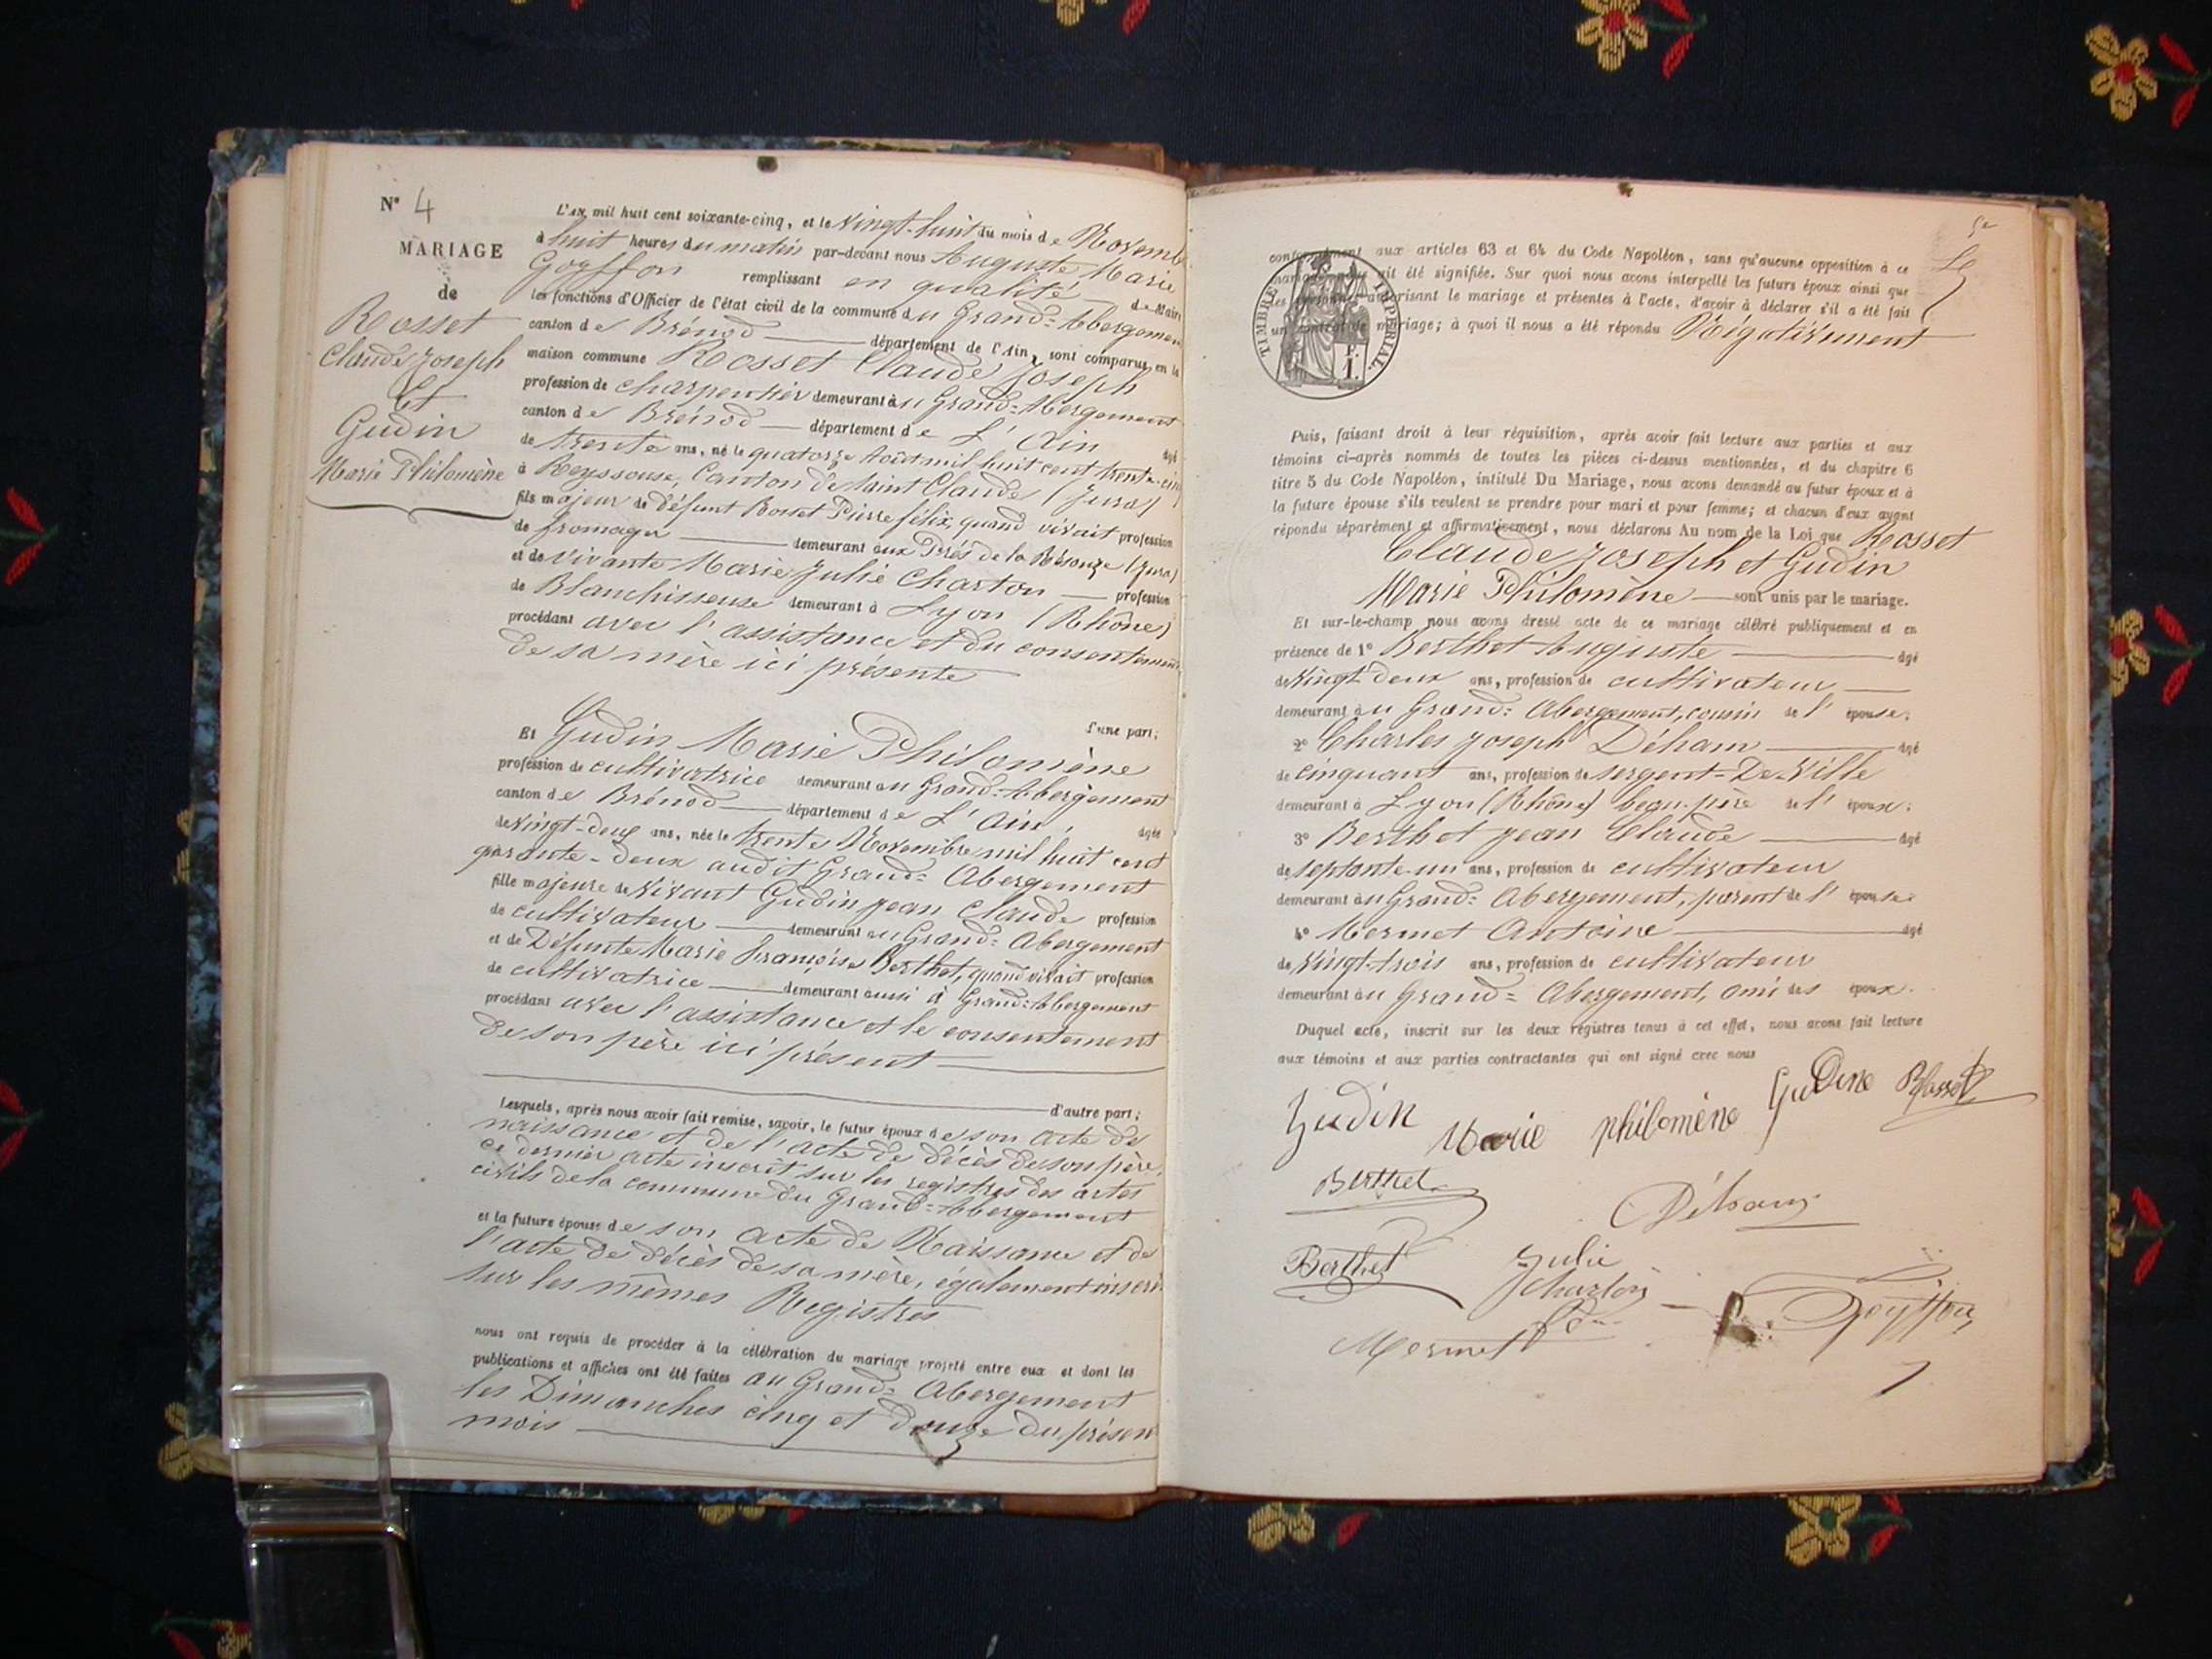 N° 4
MARIAGE
de
Rosset
Claude Joseph
Et
Gudin
Marie Philomène
L'AN mil huit cent soixante-cinq, et le vingt-huit du mois de Novemb
à huit heures du matin par-devant nous Auguste Marie
Goyffon remplissant en qualité de Maire
les fonctions d'Officier de l'état civil de la commune du Grand=Abergemen
canton de Brénod département de l'Ain, sont comparus en la
maison commune Rosset Claude Joseph
profession de charpentier demeurant au Grand=Abergement
canton de Brénod département de L'Ain âgé
de trente ans, né le quatorze Août mil huit cent trente-cin
à Reyssouse, Canton de Saint Claude (Jura)
fils majeur de défunt Rosset Pierre félix, quand vivait profession
de fromager demeurant aux Prés de la (Jura)
et de vivante Marie Julie Charton profession
de Blanchisseuse demeurant à Lyon (Rhône)
procédant avec l'assistance et du consentement
de sa mère ici présente
d'une part;
Et Gudin Marie Philomène
profession de cultivatrice demeurant au Grand=Abergement
canton de Brénod département de L'Ain, âgée
de vingt-deux ans, née le trente Novembre mil huit cent
quarante-deux audit Grand=Abergement
fille majeure de vivant Gudin Jean Claude profession
de cultivateur demeurant au Grand=Abergement
et de Défunte Marie Françoise Berthet, quand vivait profession
de cultivatrice demeurant aussi à Grand=Abergement
procédant avec l'assistance et le consentement
de son père ici présent
d'autre part;
Lesquels, après nous avoir fait remise, savoir, le futur époux de son acte de
naissance et de l'acte de décès de son père,
ce dernier acte inscrit sur les registres des actes
civils de la commune du Grand=Abergement
et la future épouse de son acte de Naissance et de
l'acte de décès de sa mère, également inscri
sur les mêmes Registres
nous ont requis de procéder à la célébration du mariage projeté entre eux et dont les
publications et affiches ont été faites au Grand=Abergement
les Dimanches cinq et douze du présen
mois
conformément aux articles 63 et 64 du Code Napoléon, sans qu'aucune opposition à ce
mariage nous ait été signifiée. Sur quoi nous avons interpellé les futurs époux ainsi que
les personnes autorisant le mariage et présentes à l'acte, d'avoir à déclarer s'il a été fait
un contrat de mariage; à quoi il nous a été répondu Négativement
TIMBRE IMPERIAL
1.
Puis, faisant droit à leur réquisition, après avoir fait lecture aux parties et aux
témoins ci-après nommés de toutes les pièces ci-dessus mentionnées, et du chapitre 6
titre 5 du Code Napoléon, intitulé Du Mariage, nous avons demandé au futur époux et à
la future épouse s'ils veulent se prendre pour mari et pour femme; et chacun d'eux ayant
répondu séparément et affirmativement, nous déclarons Au nom de la Loi que Rosset
Claude Joseph et Gudin
Marie Philomène sont unis par le mariage.
Et sur-le-champ nous avons dressé acte de ce mariage célébré publiquement et en
présence de 1° Berthet Auguste âgé
de vingt-deux ans, profession de cultivateur
demeurant au Grand=Abergement, cousin de l'épouse;
2° Charles Joseph Déham âgé
de cinquant ans, profession de sergent-De-Ville
demeurant à Lyon (Rhône) beau-père de l'époux;
3° Berthet Jean Claude âgé
de septante-un ans, profession de cultivateur
demeurant au Grand=Abergement, parent de l'épouse
4° Mermet Antoine âgé
de vingt-trois ans, profession de cultivateur
demeurant au Grand=Abergement, ami des époux.
Duquel acte, inscrit sur les deux registres tenus à cet effet, nous avons fait lecture
aux témoins et aux parties contractantes qui ont signé avec nous
Gudin Marie philomène Gudin Rosset
Berthet Déham
Berthet Julie
Charton
Mermet Goyffon